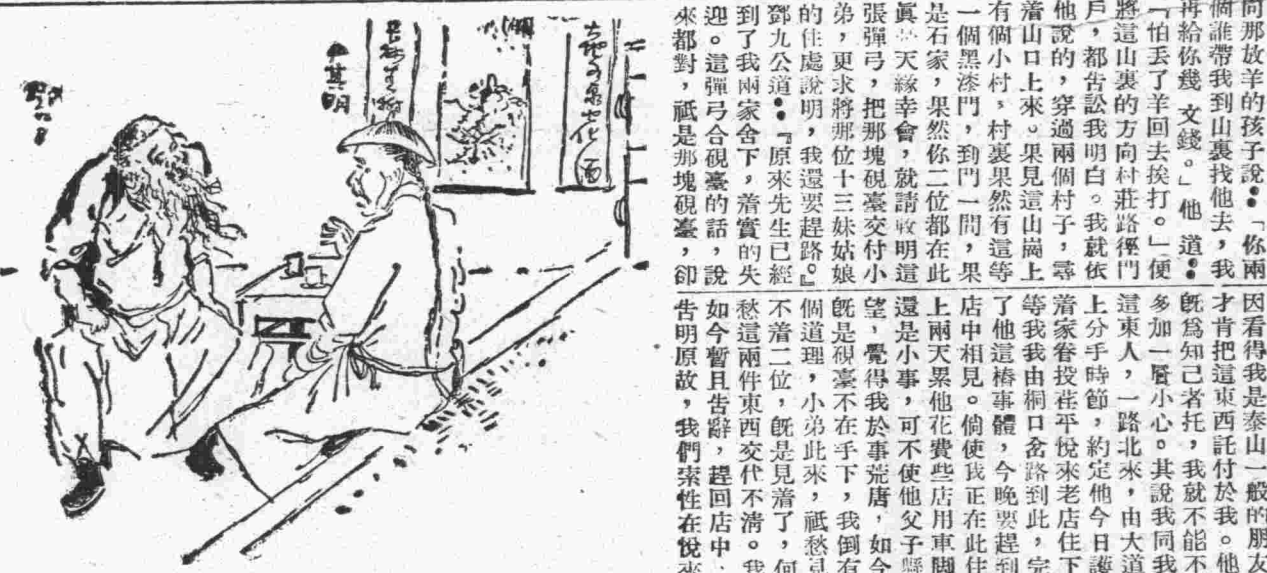 問那放羊的孩子說：「你兩
個誰帶我到山裏找他去，我
再給你幾文錢。」他道：
「怕丟了羊回去挨打。」便
將這山裏的方向村莊路徑門
戶，都告訟我明白。我就依
他說的，穿過兩個村子，尋
着山口上來。果見這山崗上
有個小村，村裏果然有這等
一個黑漆門，到門一問，果
是石家，果然你二位都在此
眞天緣幸會，就請收明這
張彈弓，把那塊硯臺交付小
弟，更求將那位十三妹姑娘
的住處說明，我還要趕路。』
鄧九公道：『原來先生已經
到了我兩家舍下，着實的失
迎。這彈弓合硯臺的話，說
來都對，祇是那塊硯臺，卻
因看得我是泰山一般的朋友
才肯把這東西託付於我。他
旣爲知己者托，我就不能不
多加一層小心。其說我同我
這東人，一路北來，由大道
上分手時節，約定他今日護
着家眷投茌平悅來老店住下
等我我由桐口岔路到此，完
了他這樁事體，今晚要趕到
店中相見。倘使我正在此住
上兩天累他花費些店用車脚
還是小事，可不使他父子懸
望，覺得我於事荒唐，如今
旣是硯臺不在手下，我倒有
個道理，小弟此來，祇愁見
不着二位，旣是見着了，何
愁這兩件東西交代不淸。我
如今暫且告辭，趕回店中，
告明原故，我們索性在悅來
其明